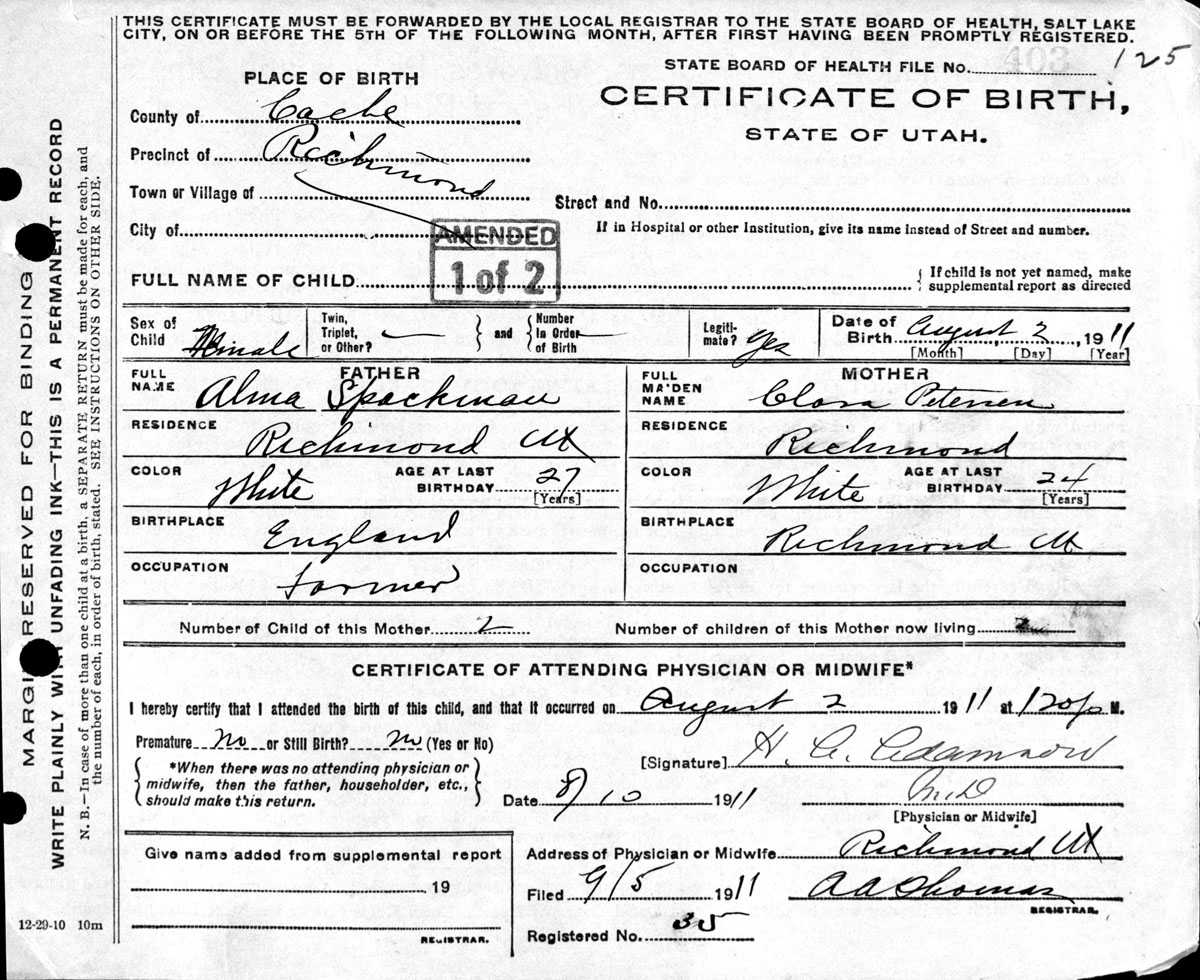 THIS CERTIFICATE MUST BE FORWARDED BY THE LOCAL REGISTRAR TO THE STATE BOARD OF HEALTH, SALT LAKE
CITY, ON OR BEFORE THE 5TH OF THE FOLLOWING MONTH, AFTER FIRST HAVING BEEN PROMPTLY REGISTERED.
MARGIN RESERVED FOR BINDING
WRITE PLAINLY WITH UNFADING INK—THIS IS A PERMANENT RECORD
N. B.—In case of more than one child at a birth, a SEPARATE RETURN must be made for each, and
the number of each, in order of birth, stated. SEE INSTRUCTIONS ON OTHER SIDE.
PLACE OF BIRTH
County of Cache
Precinct of Richmond
Town or Village of
City of
STATE BOARD OF HEALTH FILE No. 403 125
CERTIFICATE OF BIRTH,
STATE OF UTAH.
Street and No.
If in Hospital or other Institution, give its name instead of Street and number.
AMENDED
1 of 2
FULL NAME OF CHILD
If child is not yet named, make
supplemental report as directed
Sex of Child
Twin, Triplet, or Other? —
and
Number In Order of Birth —
Legiti-mate? Yes
Date of Birth August 2, 1911
[Month] [Day] [Year]
FATHER
FULL NAME Alma Spackman
RESIDENCE Richmond Ut
COLOR White
AGE AT LAST BIRTHDAY 27
[Years]
BIRTHPLACE England
OCCUPATION Farmer
MOTHER
FULL MAIDEN NAME Clora Petersen
RESIDENCE Richmond
COLOR White
AGE AT LAST BIRTHDAY 24
[Years]
BIRTHPLACE Richmond Ut
OCCUPATION
Number of Child of this Mother 2
Number of children of this Mother now living
CERTIFICATE OF ATTENDING PHYSICIAN OR MIDWIFE*
I hereby certify that I attended the birth of this child, and that it occurred on August 2 1911 at 120 p M.
Premature No or Still Birth? No (Yes or No)
*When there was no attending physician or
midwife, then the father, householder, etc.,
should make this return.
[Signature] H. Adamson
M.D
[Physician or Midwife]
Date 8/10 1911
Give name added from supplemental report
19
REGISTRAR.
12-29-10 10m
Address of Physician or Midwife Richmond Ut
Filed 9/5 1911 A A Thomas
REGISTRAR.
Registered No. 35